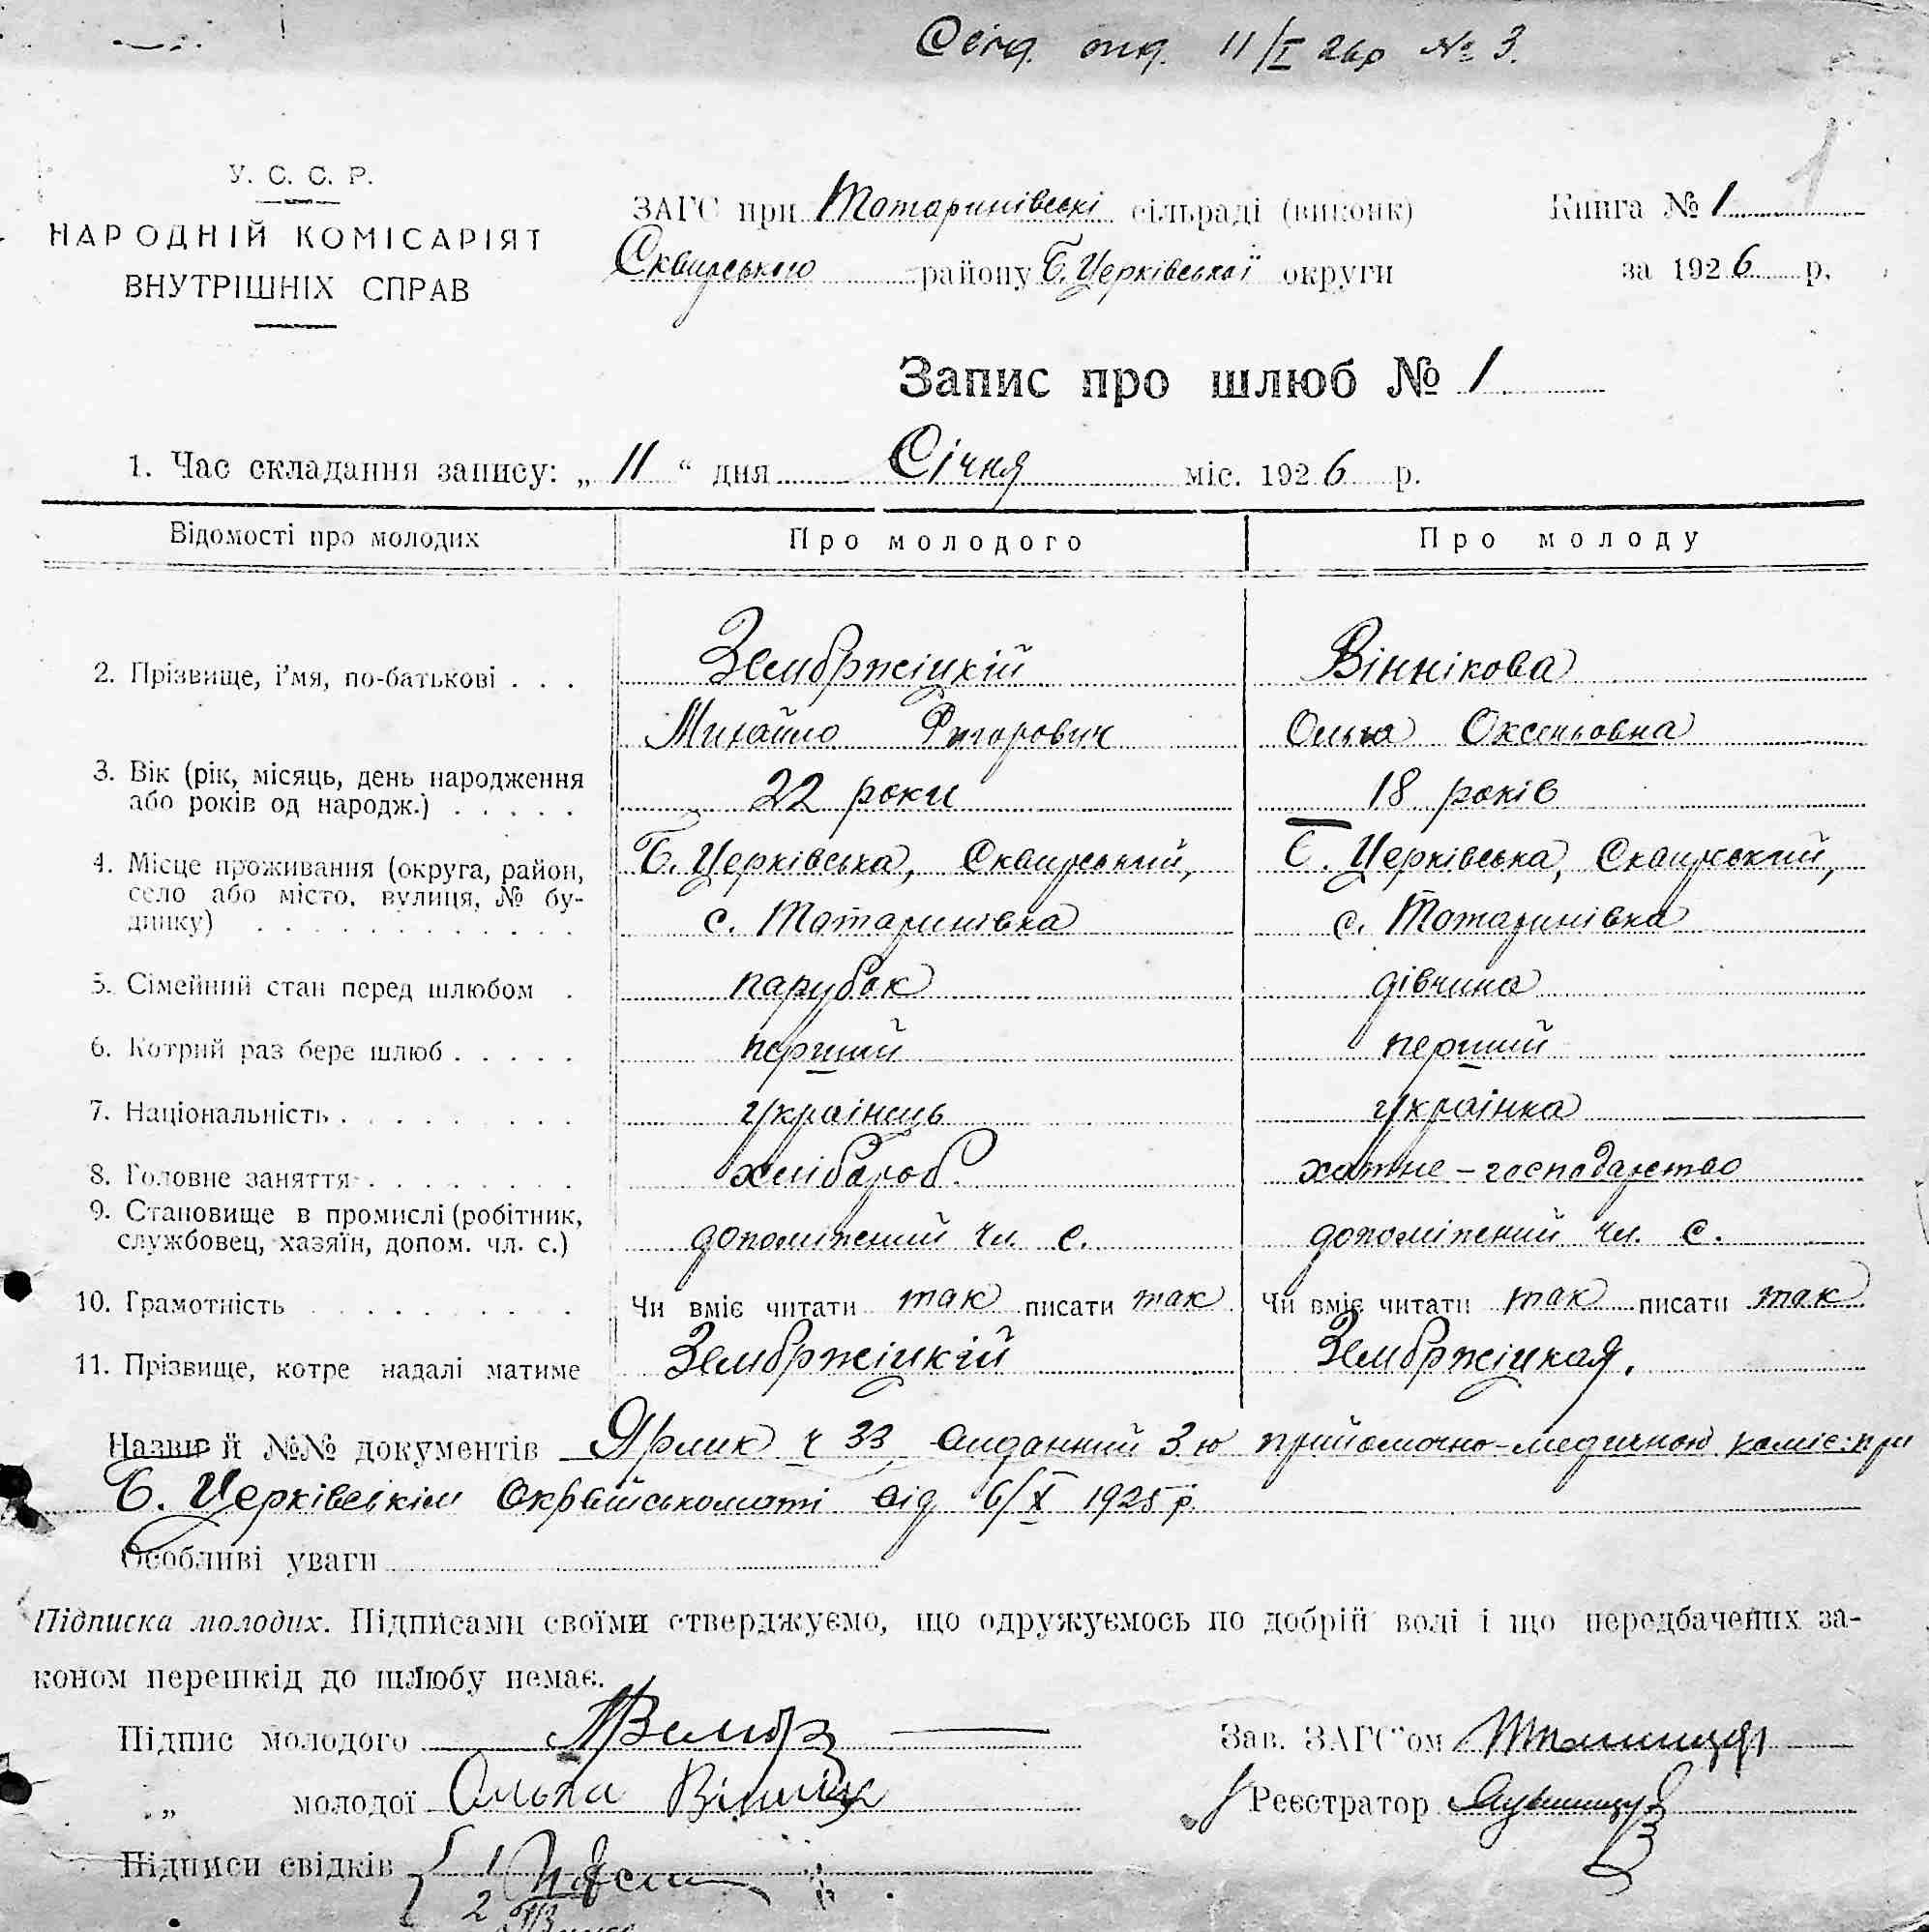 11/I 26р № 3.
1
У. С. С. Р.
НАРОДНІЙ КОМІСАРІЯТ
ВНУТРІШНІХ СПРАВ
ЗАГС при Татаринівскі сільраді (виконк)
Сквирського району Б. Церківської округи
Книга № 1
за 1926 р.
Запис про шлюб № 1
1. Час складання запису: „ 11 “ дня Січня міс. 1926 р.
Відомості про молодих Про молодого Про молоду
2. Прізвище, і'мя, по-батькові . . . Зембржіцкій Віннікова
Михайло Ольга Оксеньовна
3. Вік (рік, місяць, день народження
або років од народж.) . . . . . 22 роки 18 років
4. Місце проживання (округа, район, Б. Церківська, Сквирський, Б. Церківська, Сквирский,
село або місто, вулиця, № бу-
динку) . . . . . . . . . . . . с. Татаринівка с. Татаринівка
5. Сімейний стан перед шлюбом . парубок дівчина
6. Котрий раз бере шлюб . . . . . перший перший
7. Національність . . . . . . . . . українець українка
8. Головне заняття . . . . . . . . хлібороб. хатне-господарство
9. Становище в промислі (робітник,
службовец, хазяїн, допом. чл. с.) допоміжний чл. с. допоміжний чл. с.
10. Грамотність . . . . . . . . . . Чи вміє читати так писати так Чи вміє читати так писати так
11. Прізвище, котре надалі матиме Зембржіцкій Зембржіцкая.
Назви й №№ документів Ярлик ч 33, виданний 3ю прийомочно-медичною коміс. при
Б. Церківськім Окрвійськоматі від 6/X 1925 р.
Особливі уваги
Підписка молодих. Підписами своїми стверджуємо, що одружуємось по добрій волі і що передбачених за-
коном перешкід до шлюбу немає.
Підпис молодого МЗембр Зав. ЗАГС'ом
„ молодої Ольга Вінник Реєстратор
Підписи свідків 1
2